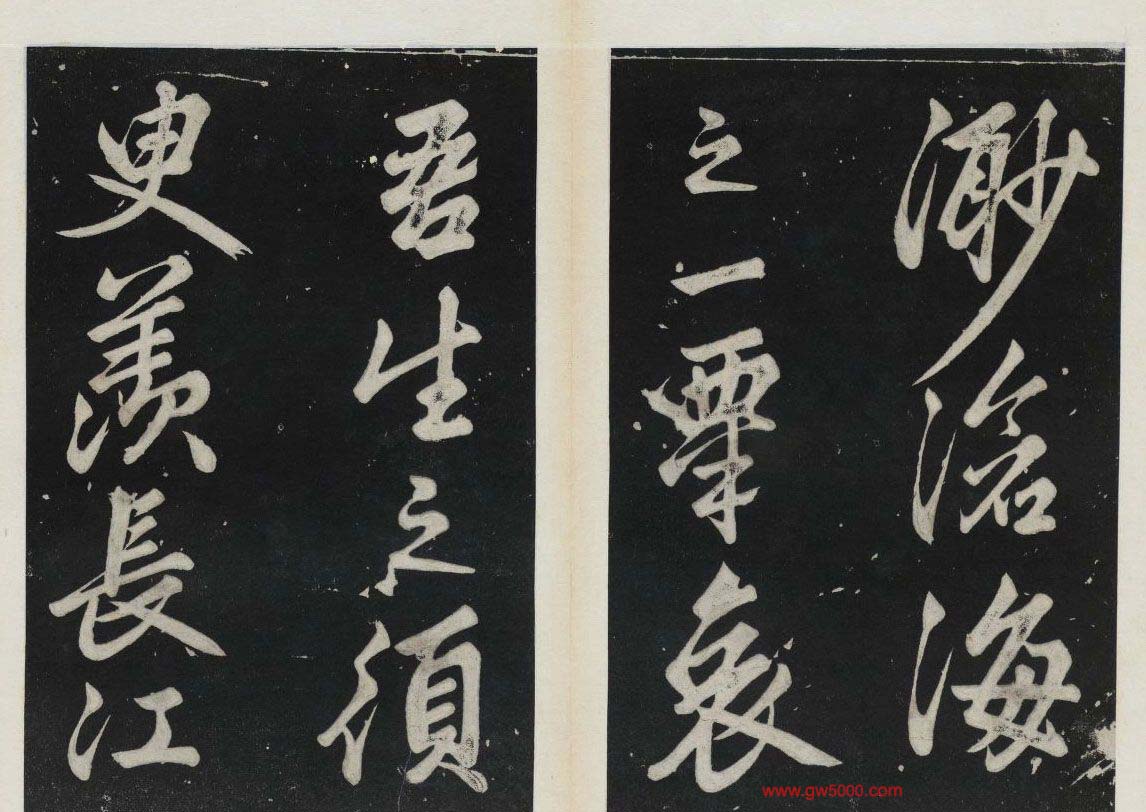 渺滄海
之一粟哀
吾生之須
臾羨長江
www.gw5000.com